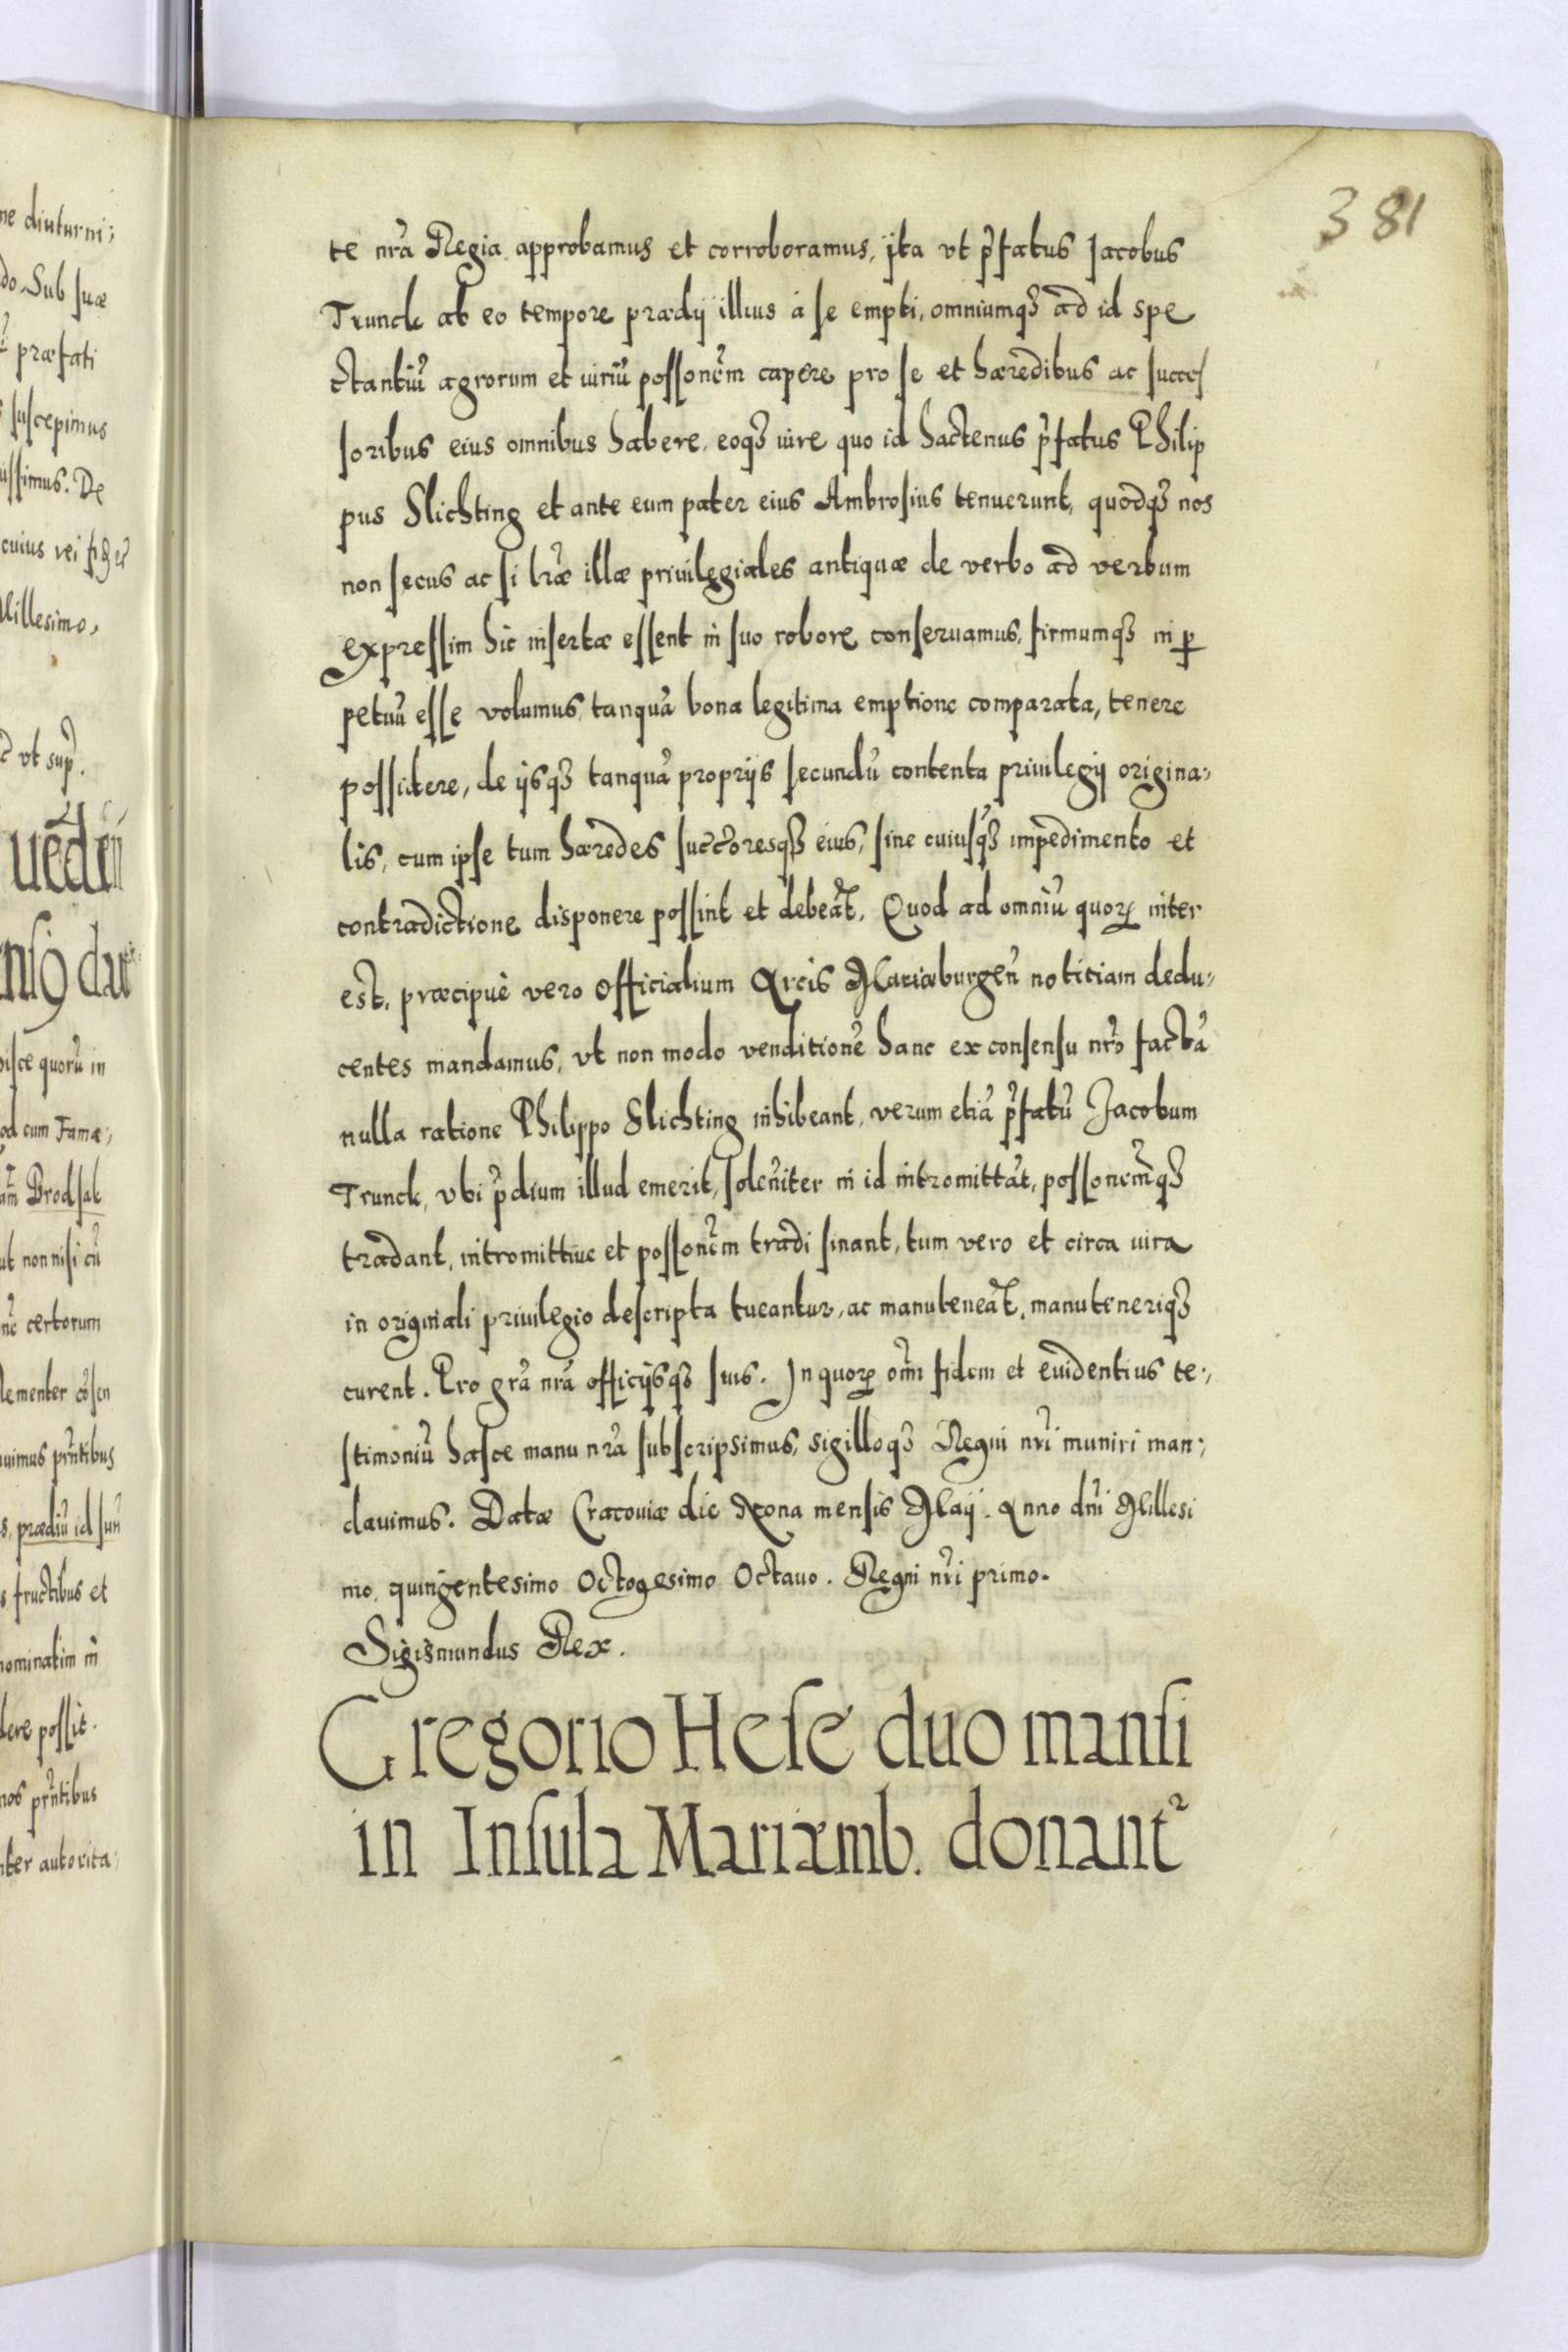 381
te nr̃a Regia approbamus et corroboramus, ita vt p̃fatus Jacobus
Trunck ab eo tempore prædij illius à se empti, omniumq̃ ad id spe
ctantiũ agrorum et iuriũ possonẽm capere pro se et hæredibus ac succes
soribus eius omnibus habere, eoq̃ iure quo id hactenus p̃fatus Philip
pus Slichting et ante eum pater eius Ambrosius tenuerunt, quodq̃ nos
non secus ac si lr̃æ illæ priuilegiales antiquæ de verbo ad verbum
expressim hic insertæ essent in suo robore conseruamus, firmumq̃ in ꝑ
petuũ esse volumus, tanquã bona legitima emptione comparata, tenere
possidere, de ijsq̃ tanquã proprijs secundũ contenta priuilegij origina⸗
lis, cum ipse tum hæredes succ̃oresq̃ eius, sine cuiusq̃ impedimento et
contradictione disponere possint et debeãt. Quod ad omniũ quoꝝ inter
est, præcipuè vero Officialium Arcis Mariæburgeñ notitiam dedu⸗
centes mandamus, vt non modo venditionẽ hanc ex consensu nr̃o factã
nulla ratione Philippo Slichting inhibeant, verum etiã p̃fatũ Jacobum
Trunck, vbi p̃dium illud emerit, solen̄iter in id intromittãt, possonẽmq̃
tradant, intromittiue et possonẽm tradi sinant, tum vero et circa iura
in originali priuilegio descripta tueantur, ac manuteneãt, manuteneriq̃
curent. Pro gr̃a nr̃a officijsq̃ suis. In quoꝝ om̃i fidem et euidentius te⸗
stimoniũ hasce manu nr̃a subscripsimus, sigilloq̃ Regni nr̃i muniri man⸗
dauimus. Datæ Cracouiæ die Nona mensis Maij. Anno dñi Millesi
mo, quingentesimo Octogesimo Octauo. Regni nr̃i primo.
Sigismundus Rex.
Gregorio Hese duo mansi
in Insula Mariæmb. donant²